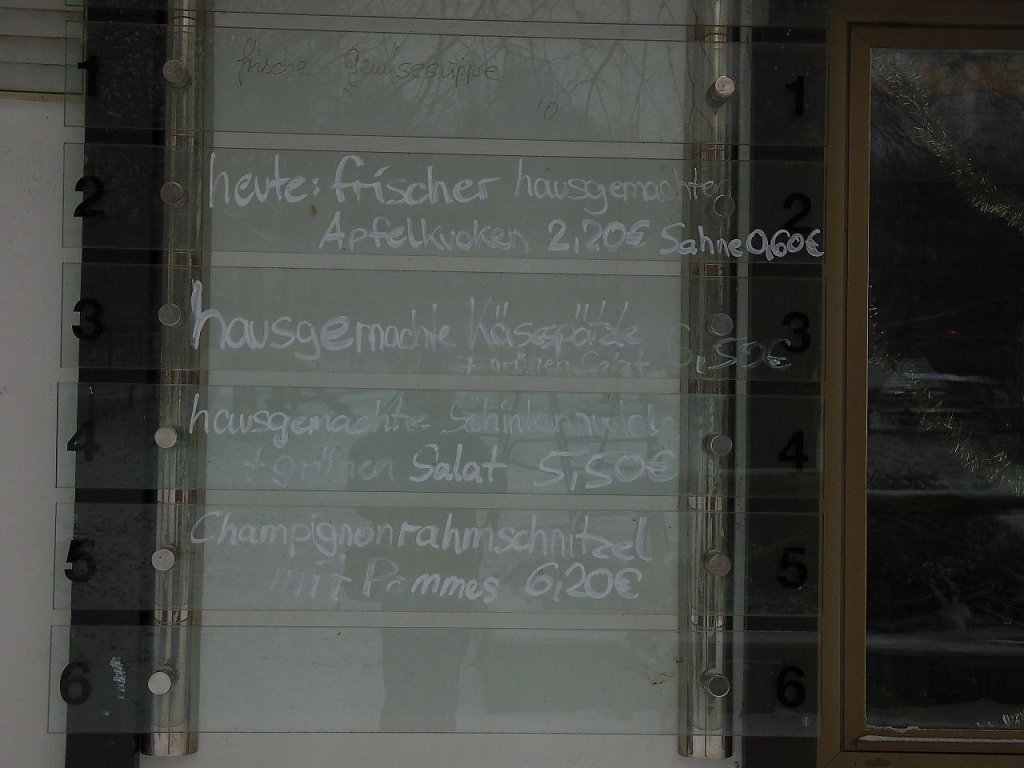 1 frische Gemüsesuppe 1
2 heute: frischer hausgemachter 2
Apfelkuchen 2,20€ Sahne 0,60€
3 hausgemachte Käsespätzle 5,50€ 3
+ grünen Salat
4 hausgemachte Schinkennudeln 4
+ grünen Salat 5,50€
5 Champignonrahmschnitzel 5
mit Pommes 6,20€
6 6